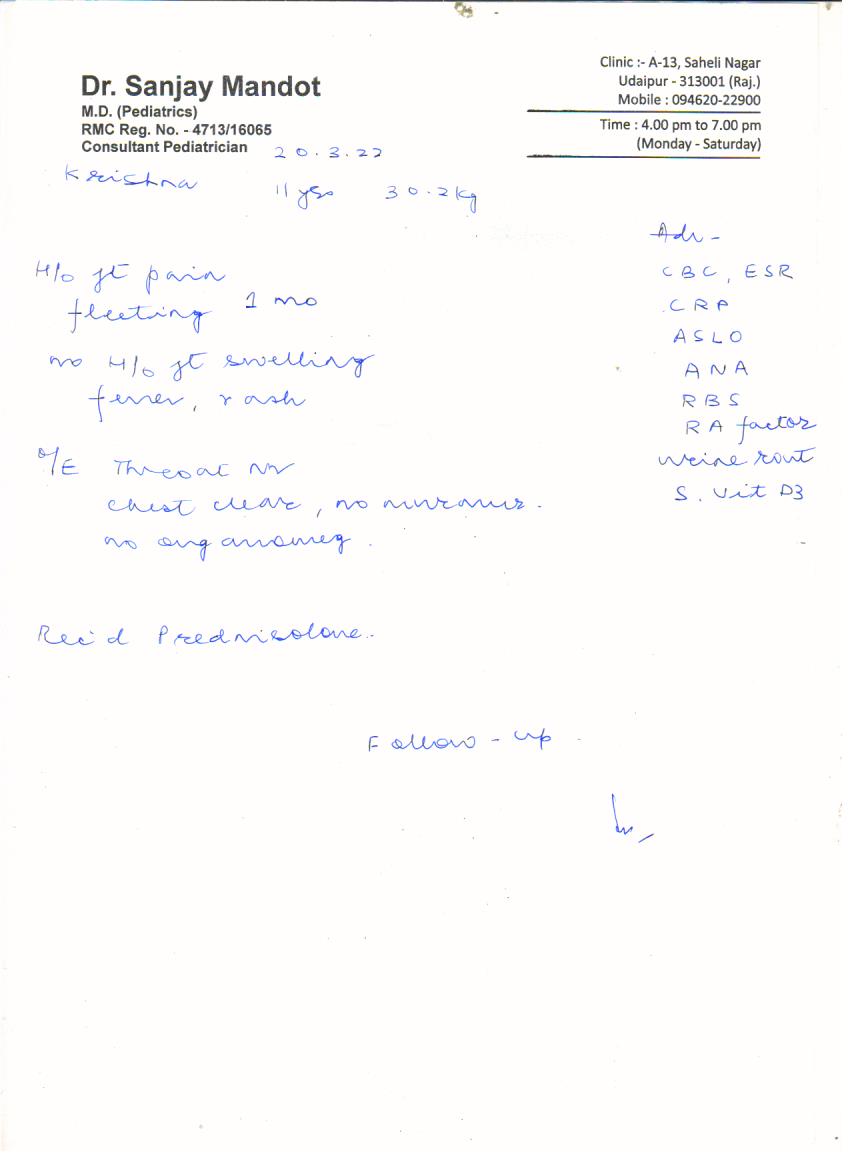 Dr. Sanjay Mandot
M.D. (Pediatrics)
RMC Reg. No. - 4713/16065
Consultant Pediatrician
Clinic :- A-13, Saheli Nagar
Udaipur - 313001 (Raj.)
Mobile : 094620-22900
Time : 4.00 pm to 7.00 pm
(Monday - Saturday)
20.3.22
Krishna 11 yrs 30.2kg
H/o jt pain
fleeting 1 mo
no H/o jt swelling
fever, rash
O/E Throat N
chest clear, no murmur.
no organomeg.
Rec'd Prednisolone.
Adv -
CBC, ESR
CRP
ASLO
ANA
RBS
RA factor
urine rout
S. Vit D3
Follow-up